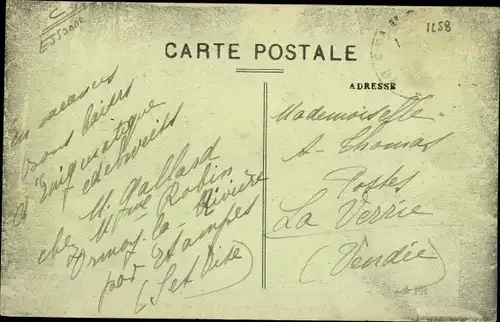 Essonne
1258
CARTE POSTALE
ADRESSE
En vacances
Bons baisers
à Enigmatique
edelweiss
M. Hallard
chez Mme Robin
Ormoy-la-Rivière
par Etampes
(Set Oise)
Mademoiselle
A- Thomas
Postes
La Verrie
(Vendée)